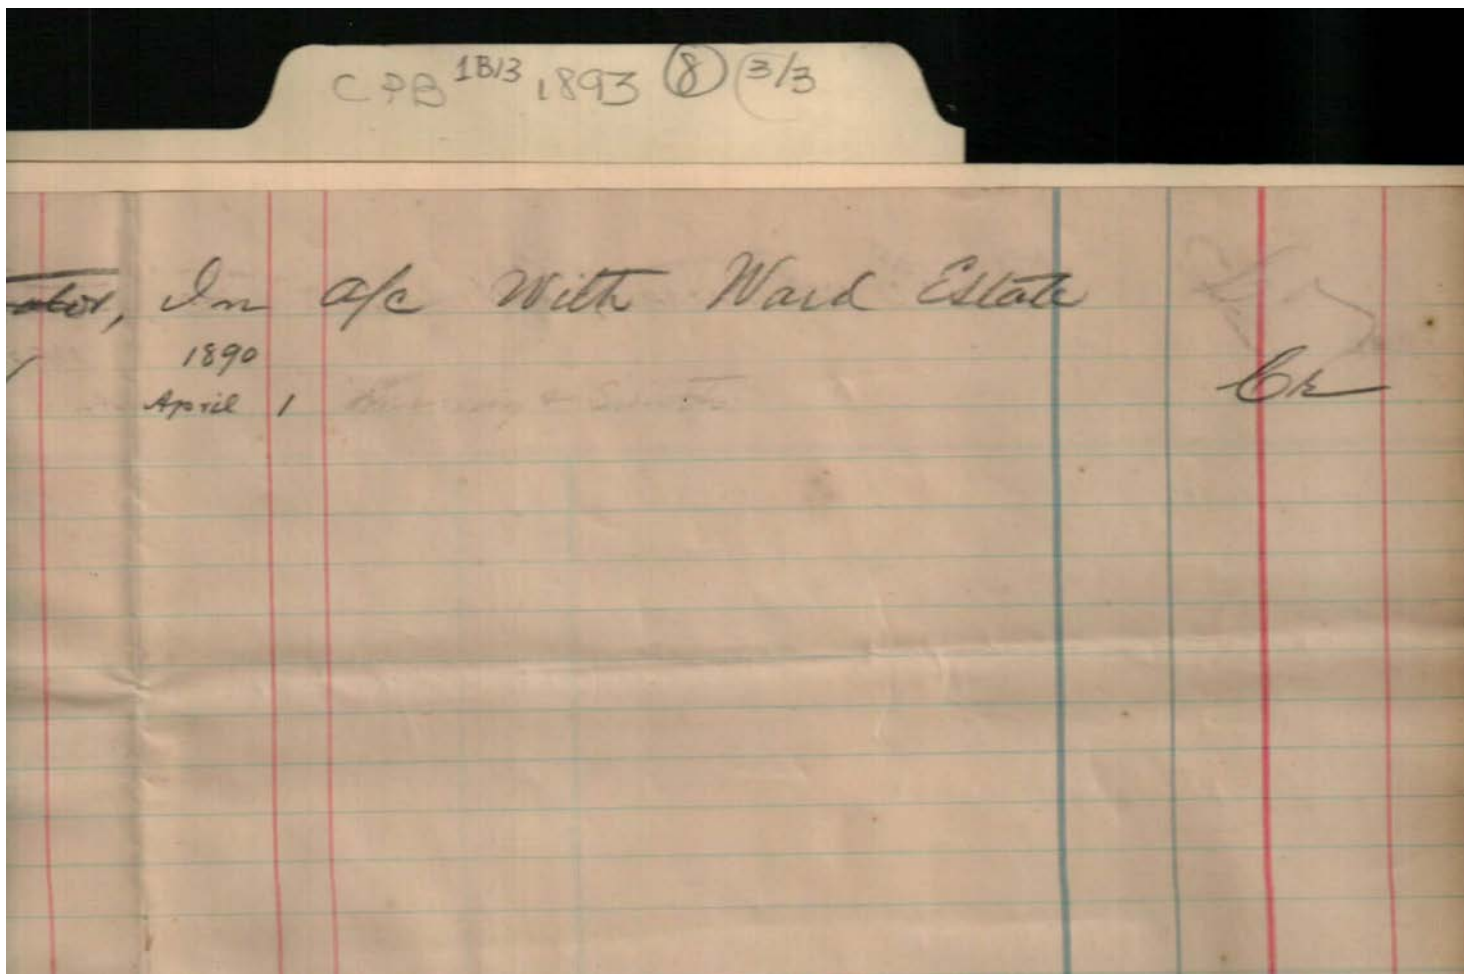 CPB 1B13 1893 8 3/3
In a/c With Ward Estate
1890
Cr
April 1